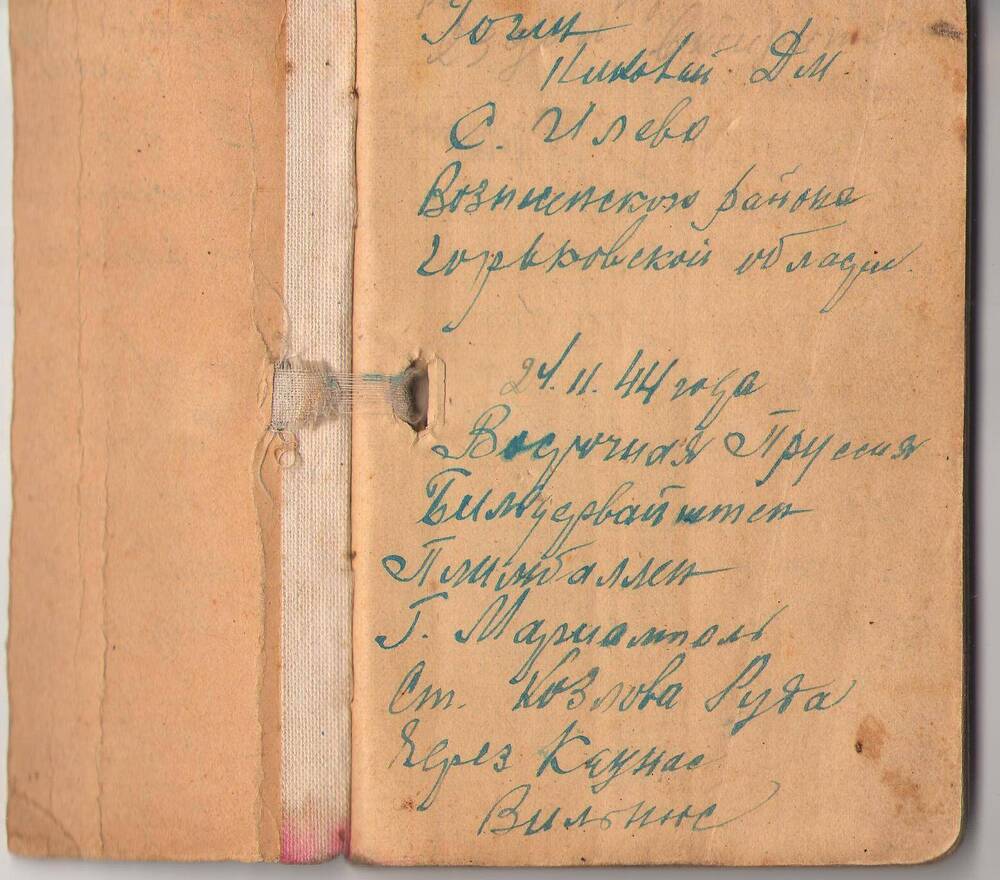 Николай Дм
С. Илево
Вознесенского района
Горьковской области
21.11.44 года
Восточная Пруссия
Пилюбаллен
Г. Мариамполь
Ст. Козлова Руда
Через Каунас
Вильнюс